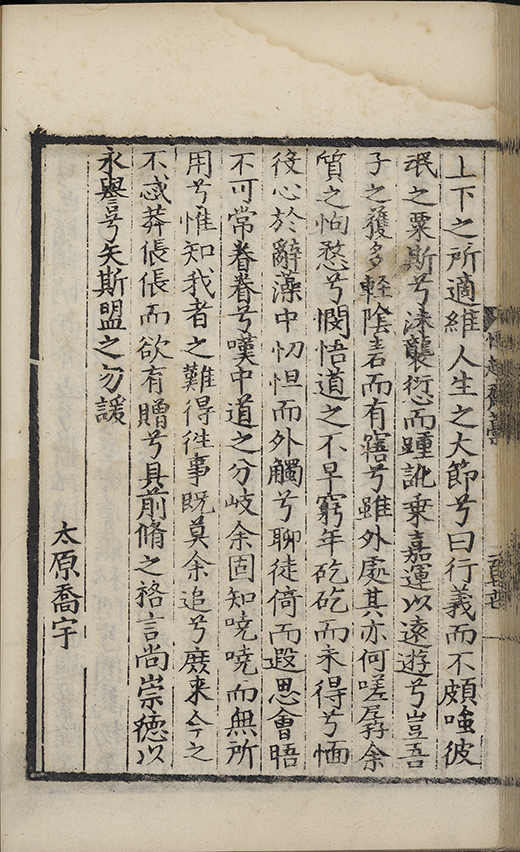 上下之所適維人生之大節兮曰行義而不頗嗤彼
珉之粟斯兮洙襲衍而踵訛乗嘉運以遠遊兮豈吾
子之獲多輕陰而有寤兮雖外處其亦何嗟孱余
質之怐愗兮憫悟道之不早窮年矻矻而未得兮愐
役心於辭藻中忉怛而外觸兮聊徒倚而遐思會晤
不可常眷眷兮嘆中道之分岐余固知嘵嘵而無所
用兮惟知我者之難得徃事既莫余追兮庻来今之
不惑莽倀倀而欲有贈兮具前脩之袼言尚崇徳以
永譽兮矢斯盟之勿諼
太原喬宇